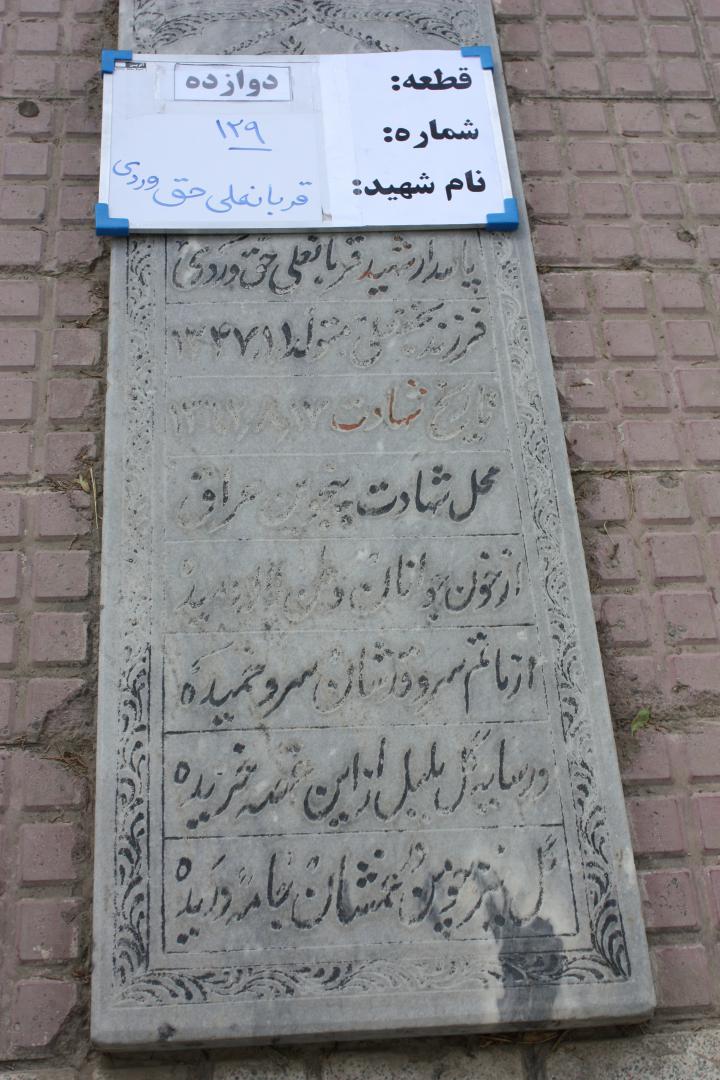 قطعه: دوازده
شماره: ۱۲۹
نام شهید: قربانعلی حق وردی
پاسدار شهید قربانعلی حق وردی
فرزند یحیعلی متولد ۱۳۴۷/۱
تاریخ شهادت
محل شهادت پنجوین عراق
از خون جوانان وطن لاله دمیده
از ماتم سرو قدشان سرو خمیده
در سایه گل بلبل از این غصه خزیده
گل نیز چو من در غمشان جامه دریده